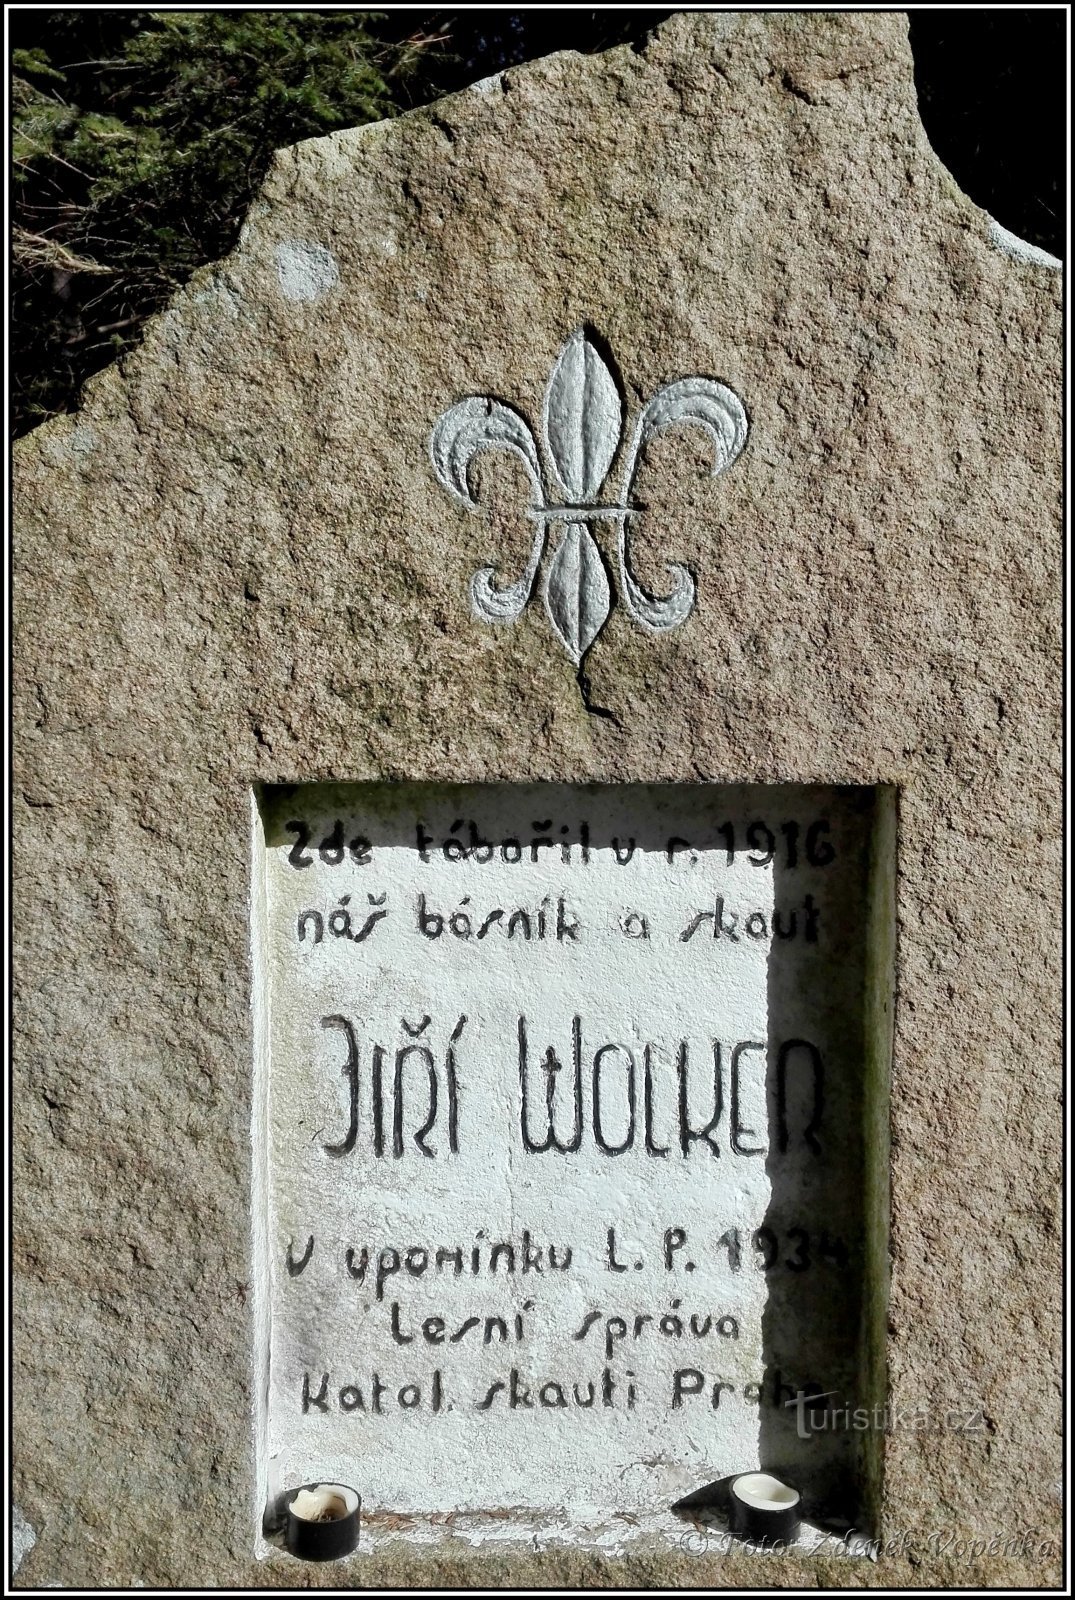 Zde tábořil v r. 1916
náš básník a skaut
JIŘÍ WOLKER
V upomínku L. P. 1934
Lesní správa
Katol. skauti Praha
Turistika.cz
© Foto: Zdeněk Vopěnka